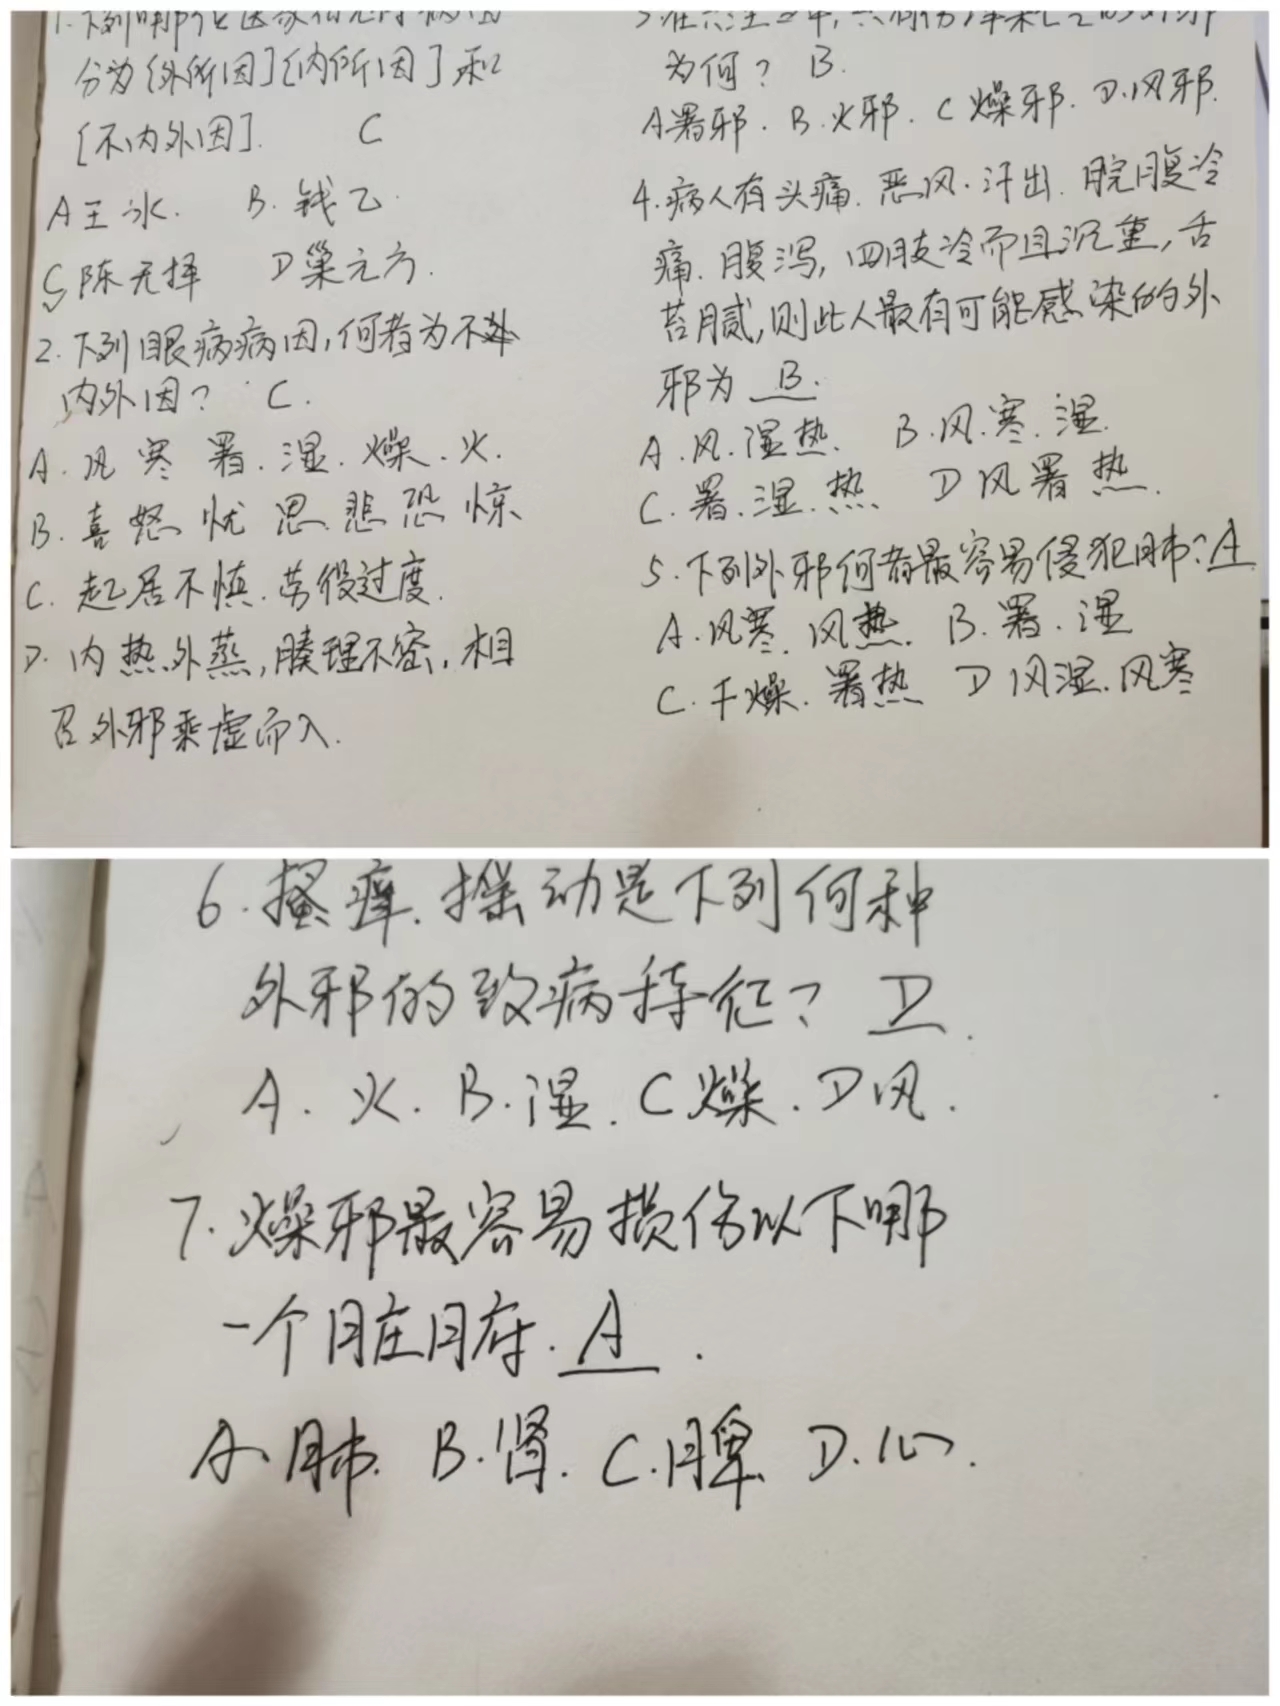 1.下列哪个医家
分为[外所因][内所因]和
[不内外因]. C
A王冰. B.钱乙.
C陈无择 D巢元方.
2.下列眼病病因,何者为不
内外因? C.
A.风寒署.湿.燥.火.
B.喜怒忧思悲恐惊
C.起居不慎.劳役过度.
D.内热外蒸,腠理不密,相
召外邪乘虚而入.
为何? B.
A署邪.B.火邪.C燥邪.D.风邪.
4.病人有头痛.恶风.汗出.脘腹冷
痛.腹泻,四肢冷而且沉重,舌
苔腻,则此人最有可能感染的外
邪为 B.
A.风.湿热. B.风.寒.湿.
C.署.湿.热 D风署热.
5.下列外邪何者最容易侵犯肺?A
A.风寒.风热. B.署.湿
C.干燥.署热 D风湿.风寒
6.搔痒.摇动是下列何种
外邪的致病特征? D.
A.火.B.湿.C燥.D风.
7.燥邪最容易损伤以下哪
一个脏腑. A.
A.肺.B.肾.C.脾.D.心.